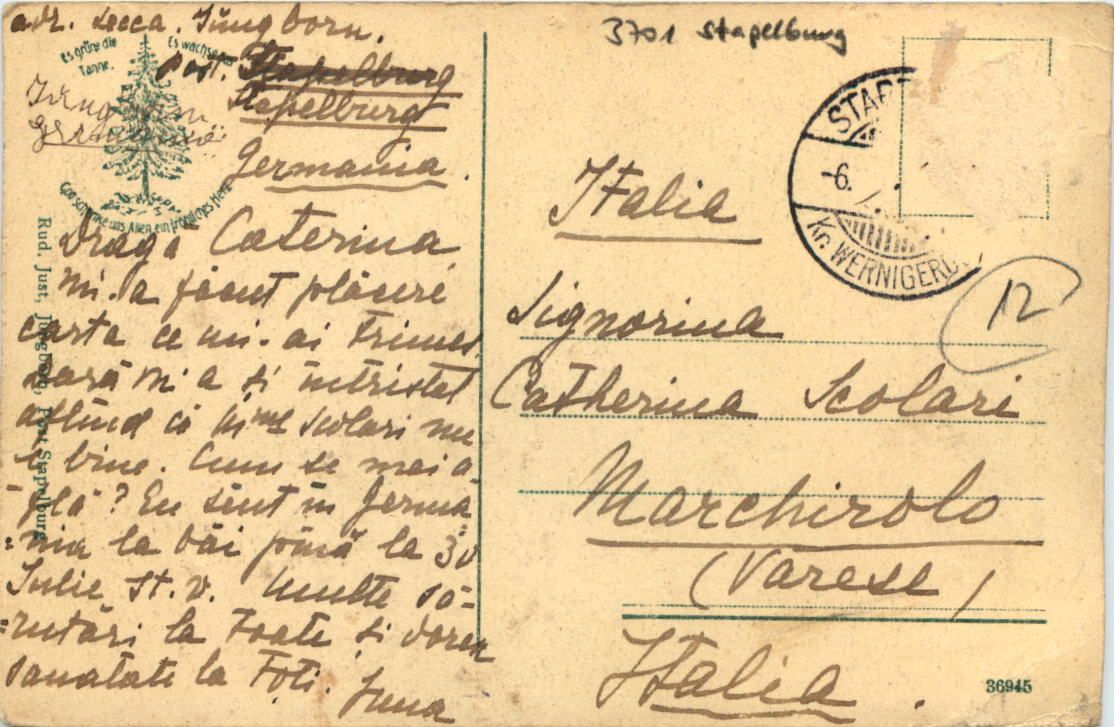 adr. Secca. Jüngborn.
Post. Stapelburg
Stapelburg
Germania.
Es grüne die
Tanne,
Es wachse
Gott schenke uns Allen ein fröhliches Herz
Draga Caterina,
Mi-a făcut plăcere
carta ce mi-ai trimes
dară mi a și intristat
aflînd că Scolari nu
e bine. Cum se mai a-
flă? Eu sînt in Germa
=nia la băi pînă la 30
Iulie St. v. Multe să-
=rutări la toate și doresc
sanatate la toți.
Rud. Just, Jungborn, Post Stapelburg
3701 Stapelburg
STAP
-6.
Kr. WERNIGERO
12
Italia
Signorina
Catherina Scolari
Marchirolo
(Varese)
Italia.
36945